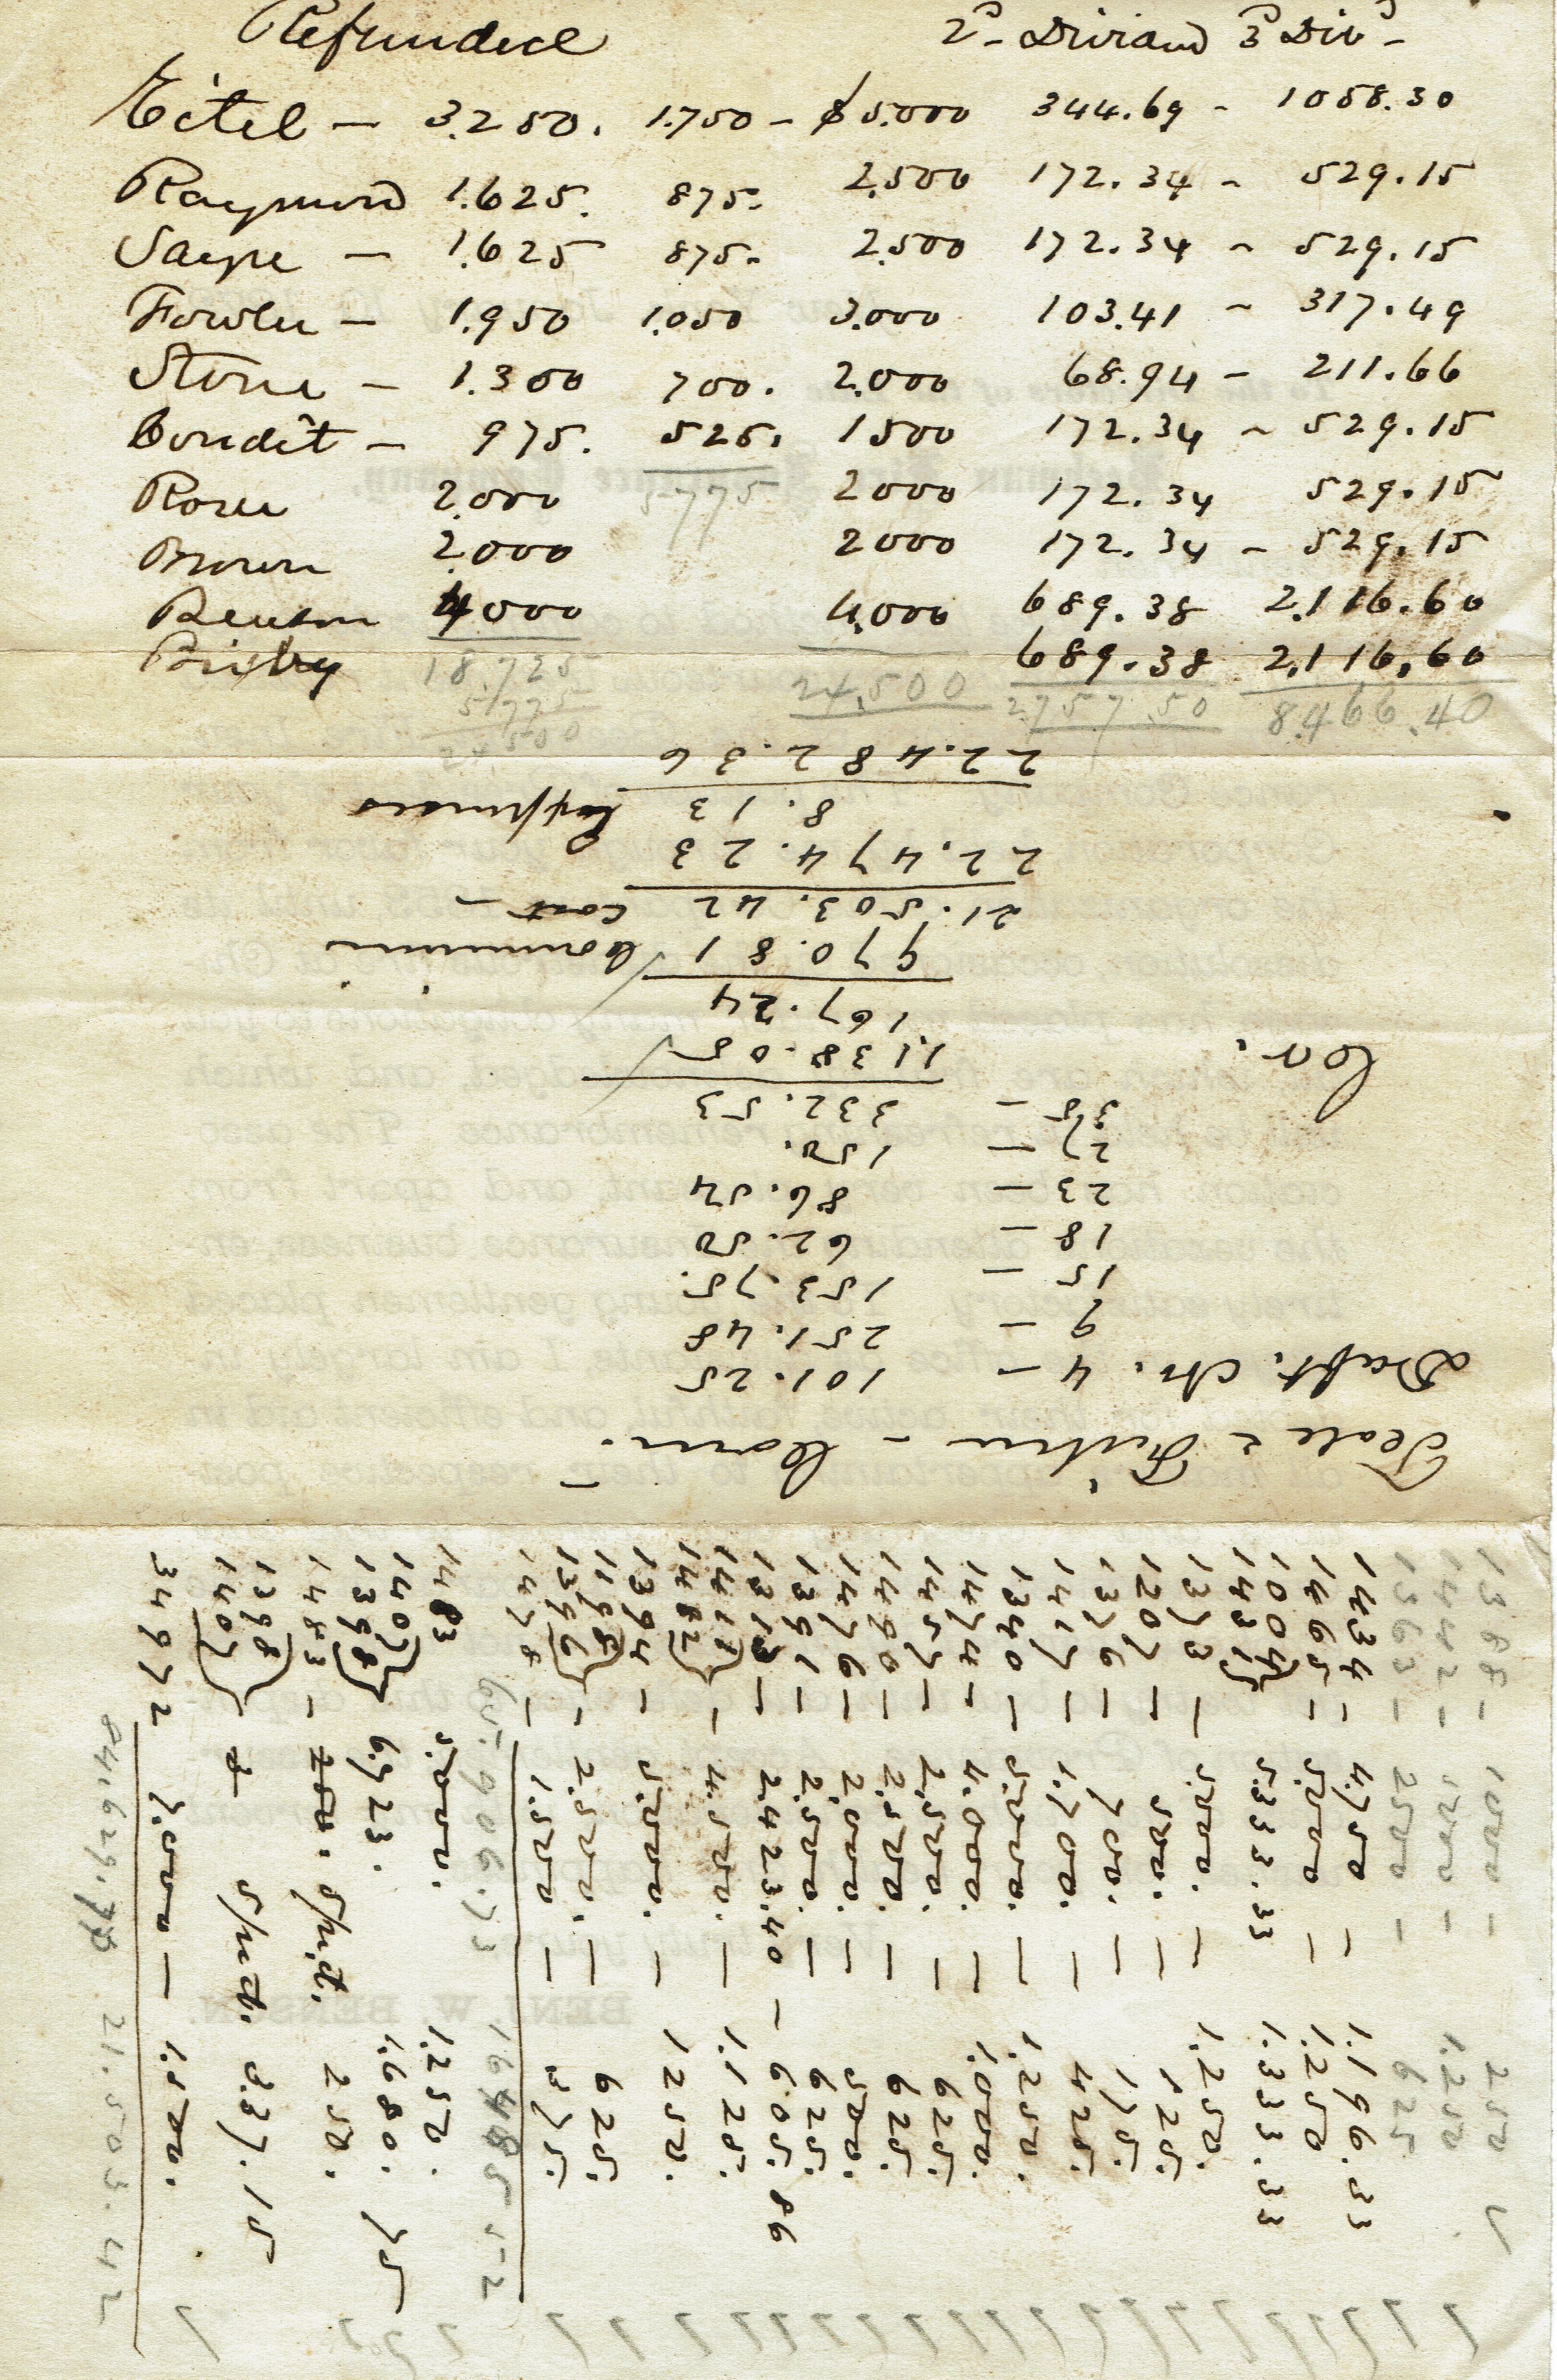 Refunded 2d Dividend 3d Div -
Eitel - 3.250. 1.750 - $5.000 344.69 - 1058.30
Raymond 1.625. 875. 2.500 172.34 - 529.15
Saepe - 1.625 875. 2.500 172.34 - 529.15
Fowler - 1.950 1.050 3.000 103.41 - 317.49
Stone - 1.300 700. 2.000 68.94 - 211.66
Condit - 975. 525. 1500 172.34 - 529.15
Rosen 2.000 5775 2000 172.34 529.15
Brown 2.000 2000 172.34 - 529.15
Benson 4000 4.000 689.38 2.116.60
Brisby 18.725 689.38 2.116.60
5/775 24,500 2757.50 8.466.40
24500
Teale & Fisher - Comm. -
Draft. ch. 4 - 101.25
9 - 251.48
15 - 153.75.
18 - 62.50
23 - 86.54
27 - 150.
35 - 332.53
Cor. 1.138.05
167.24
970.81 Commission
21.503.42 Cost -
22.474.23
8.13 Expenses
22.482.36
1388 - 1000 - 250
1442 - 5000 - 1.250
1363 - 2500 - 625
1434 - 4.750 - 1.196.33
1465 - 5.000 - 1.250
1004
1431 5.333.33 1.333.33
1373 - 5.000. - 1.250.
1207 - 500. - 125.
1376 - 700. - 175.
1417 - 1.700. - 425.
1340 - 5.000. - 1.250.
1474 - 4.000. - 1.000.
1457 - 2.500. - 625.
1440 - 2.500. - 625.
1476 - 2.000. - 500.
1391 - 2.500. - 625.
1313 - 2.423.40 - 605.86
1411
1482 - 4.500. - 1.125.
1394 - 5.000. - 1250.
1198
1396 - 2.500. - 625.
1478 - 1.500 - 375.
65.906.73 16485 52
1483 5.000. 1.250.
1407
1398 6.723. 1.680.75
1483 - Split. 250.
1398
1407 Split. 337.15
3497 2 7.000 - 1.500.
84.629.73 21.503.42
BEN. W. BENSON.